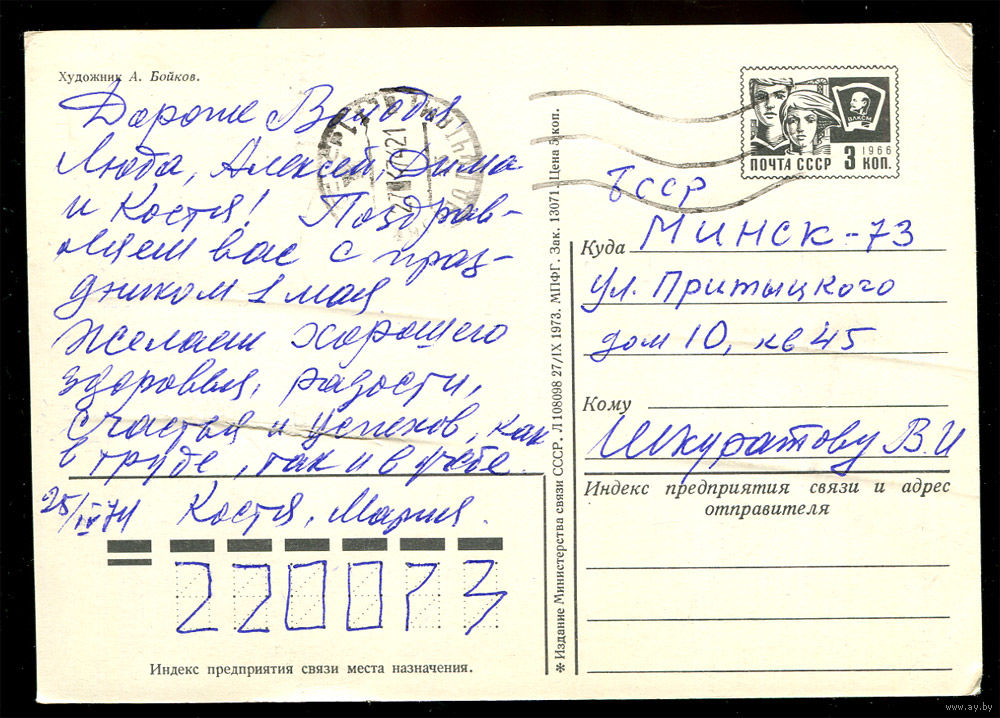 Художник А. Бойков.
Дорогие Володя,
Люба, Алексей, Дима
и Костя! Поздрав-
ляем вас с праз-
дником 1 мая
Желаем хорошего
здоровья, радости,
счастья и успехов, как
в труде, так и в учебе.
25/IV 74 Костя, Мария.
220073
Индекс предприятия связи места назначения.
✻ Издание Министерства связи СССР. Л 108098 27/IX 1973. МПФГ. Зак. 13071. Цена 5 коп.
ВЛКСМ
1966
ПОЧТА СССР 3 КОП.
БССР
Куда МИНСК-73
ул. Притыцкого
дом 10, кв 45
Кому
Шкуратову В. И
Индекс предприятия связи и адрес
отправителя
www.ay.by